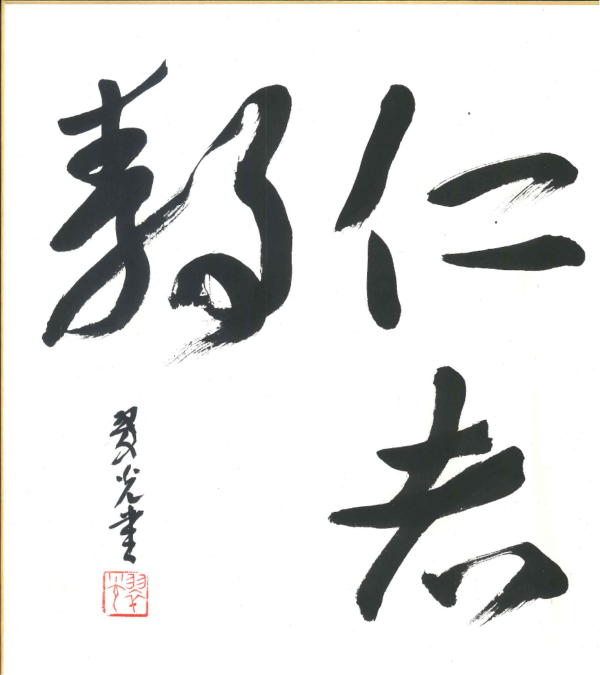 仁者
静
翠光書